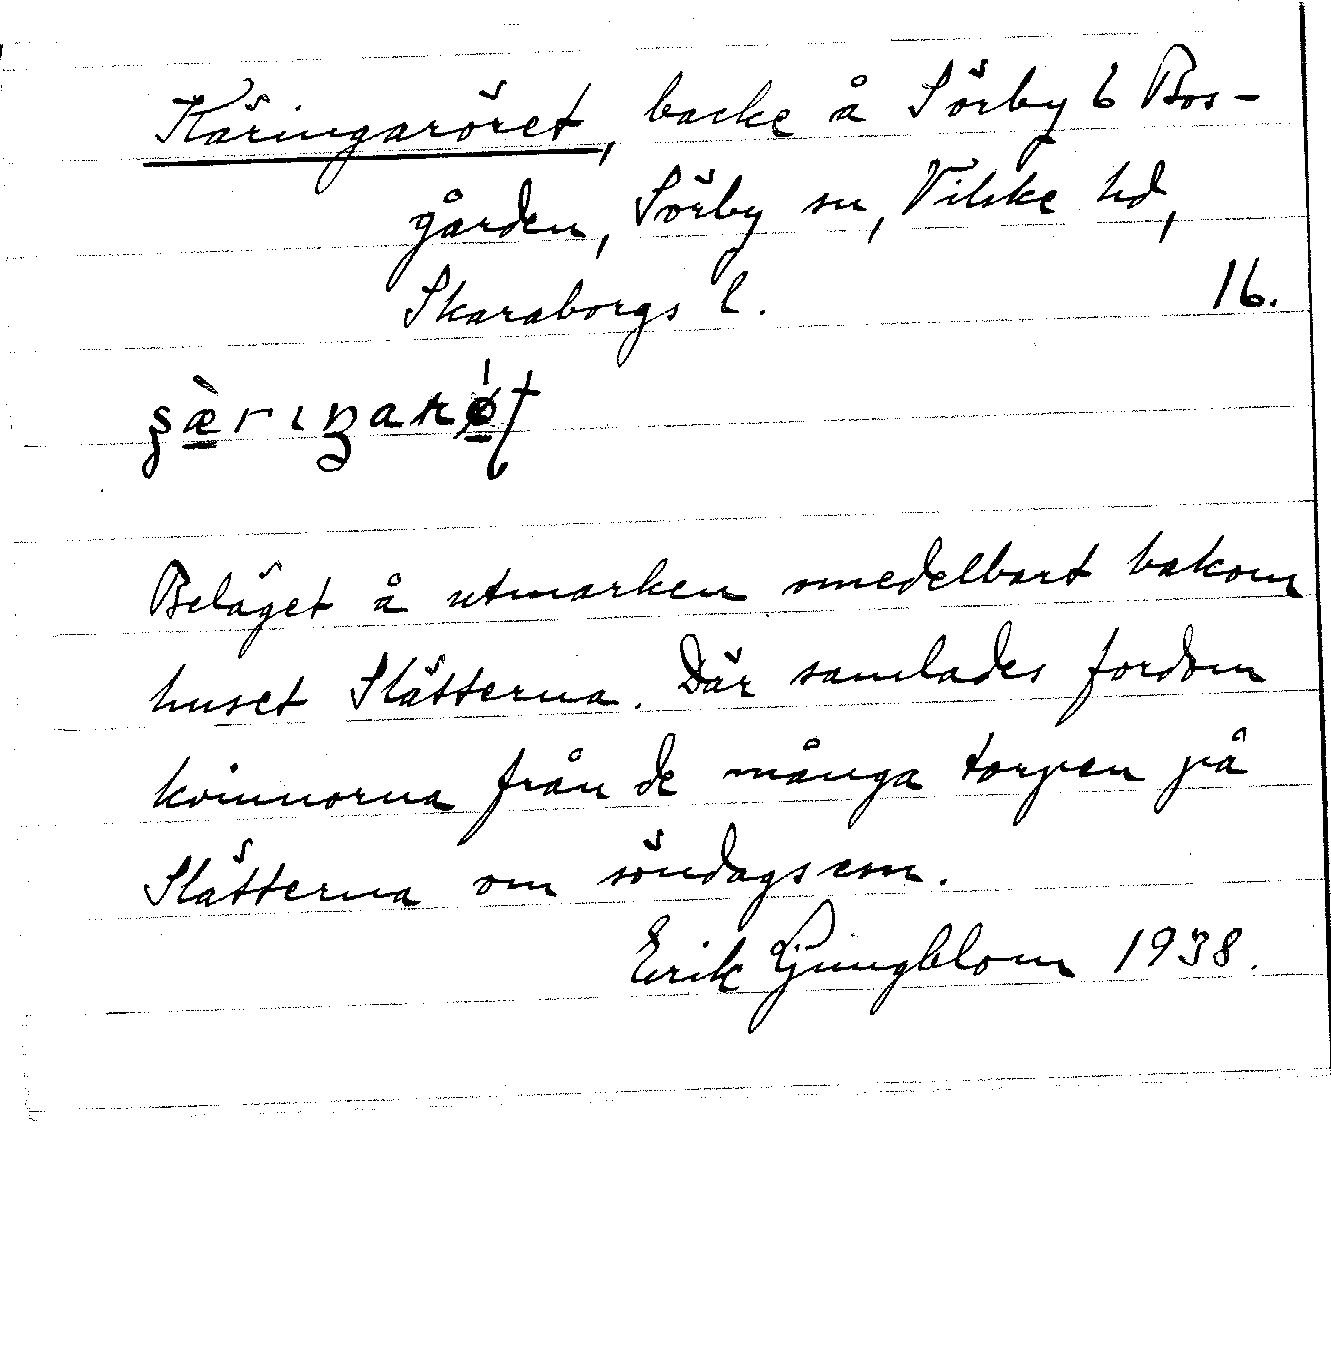 Käringaröret, backe å Sörby 6 Bos-
gården, Sörby sn, Vilske hd,
Skaraborgs l. 16.
Beläget å utmarken omedelbart bakom
huset Slätterna. Där samlades fordom
kvinnorna från de många torpen på
Slätterna om söndagsem.
Erik Ljungblom 1938.